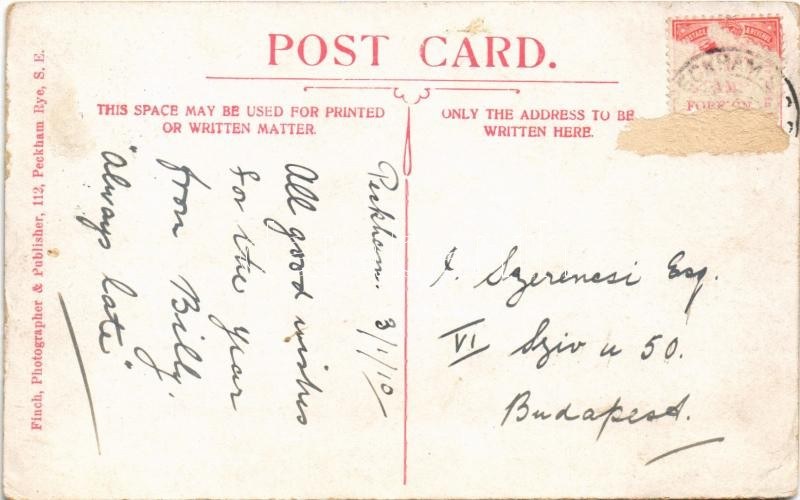 POST CARD.
THIS SPACE MAY BE USED FOR PRINTED
OR WRITTEN MATTER.
ONLY THE ADDRESS TO BE
WRITTEN HERE.
Peckham. 3/1/10
All good wishes
for the year
from Billy.
"always late"
Szerencsi Esq.
VI Sziv u 50.
Budapest.
Finch, Photographer & Publisher, 112, Peckham Rye, S. E.